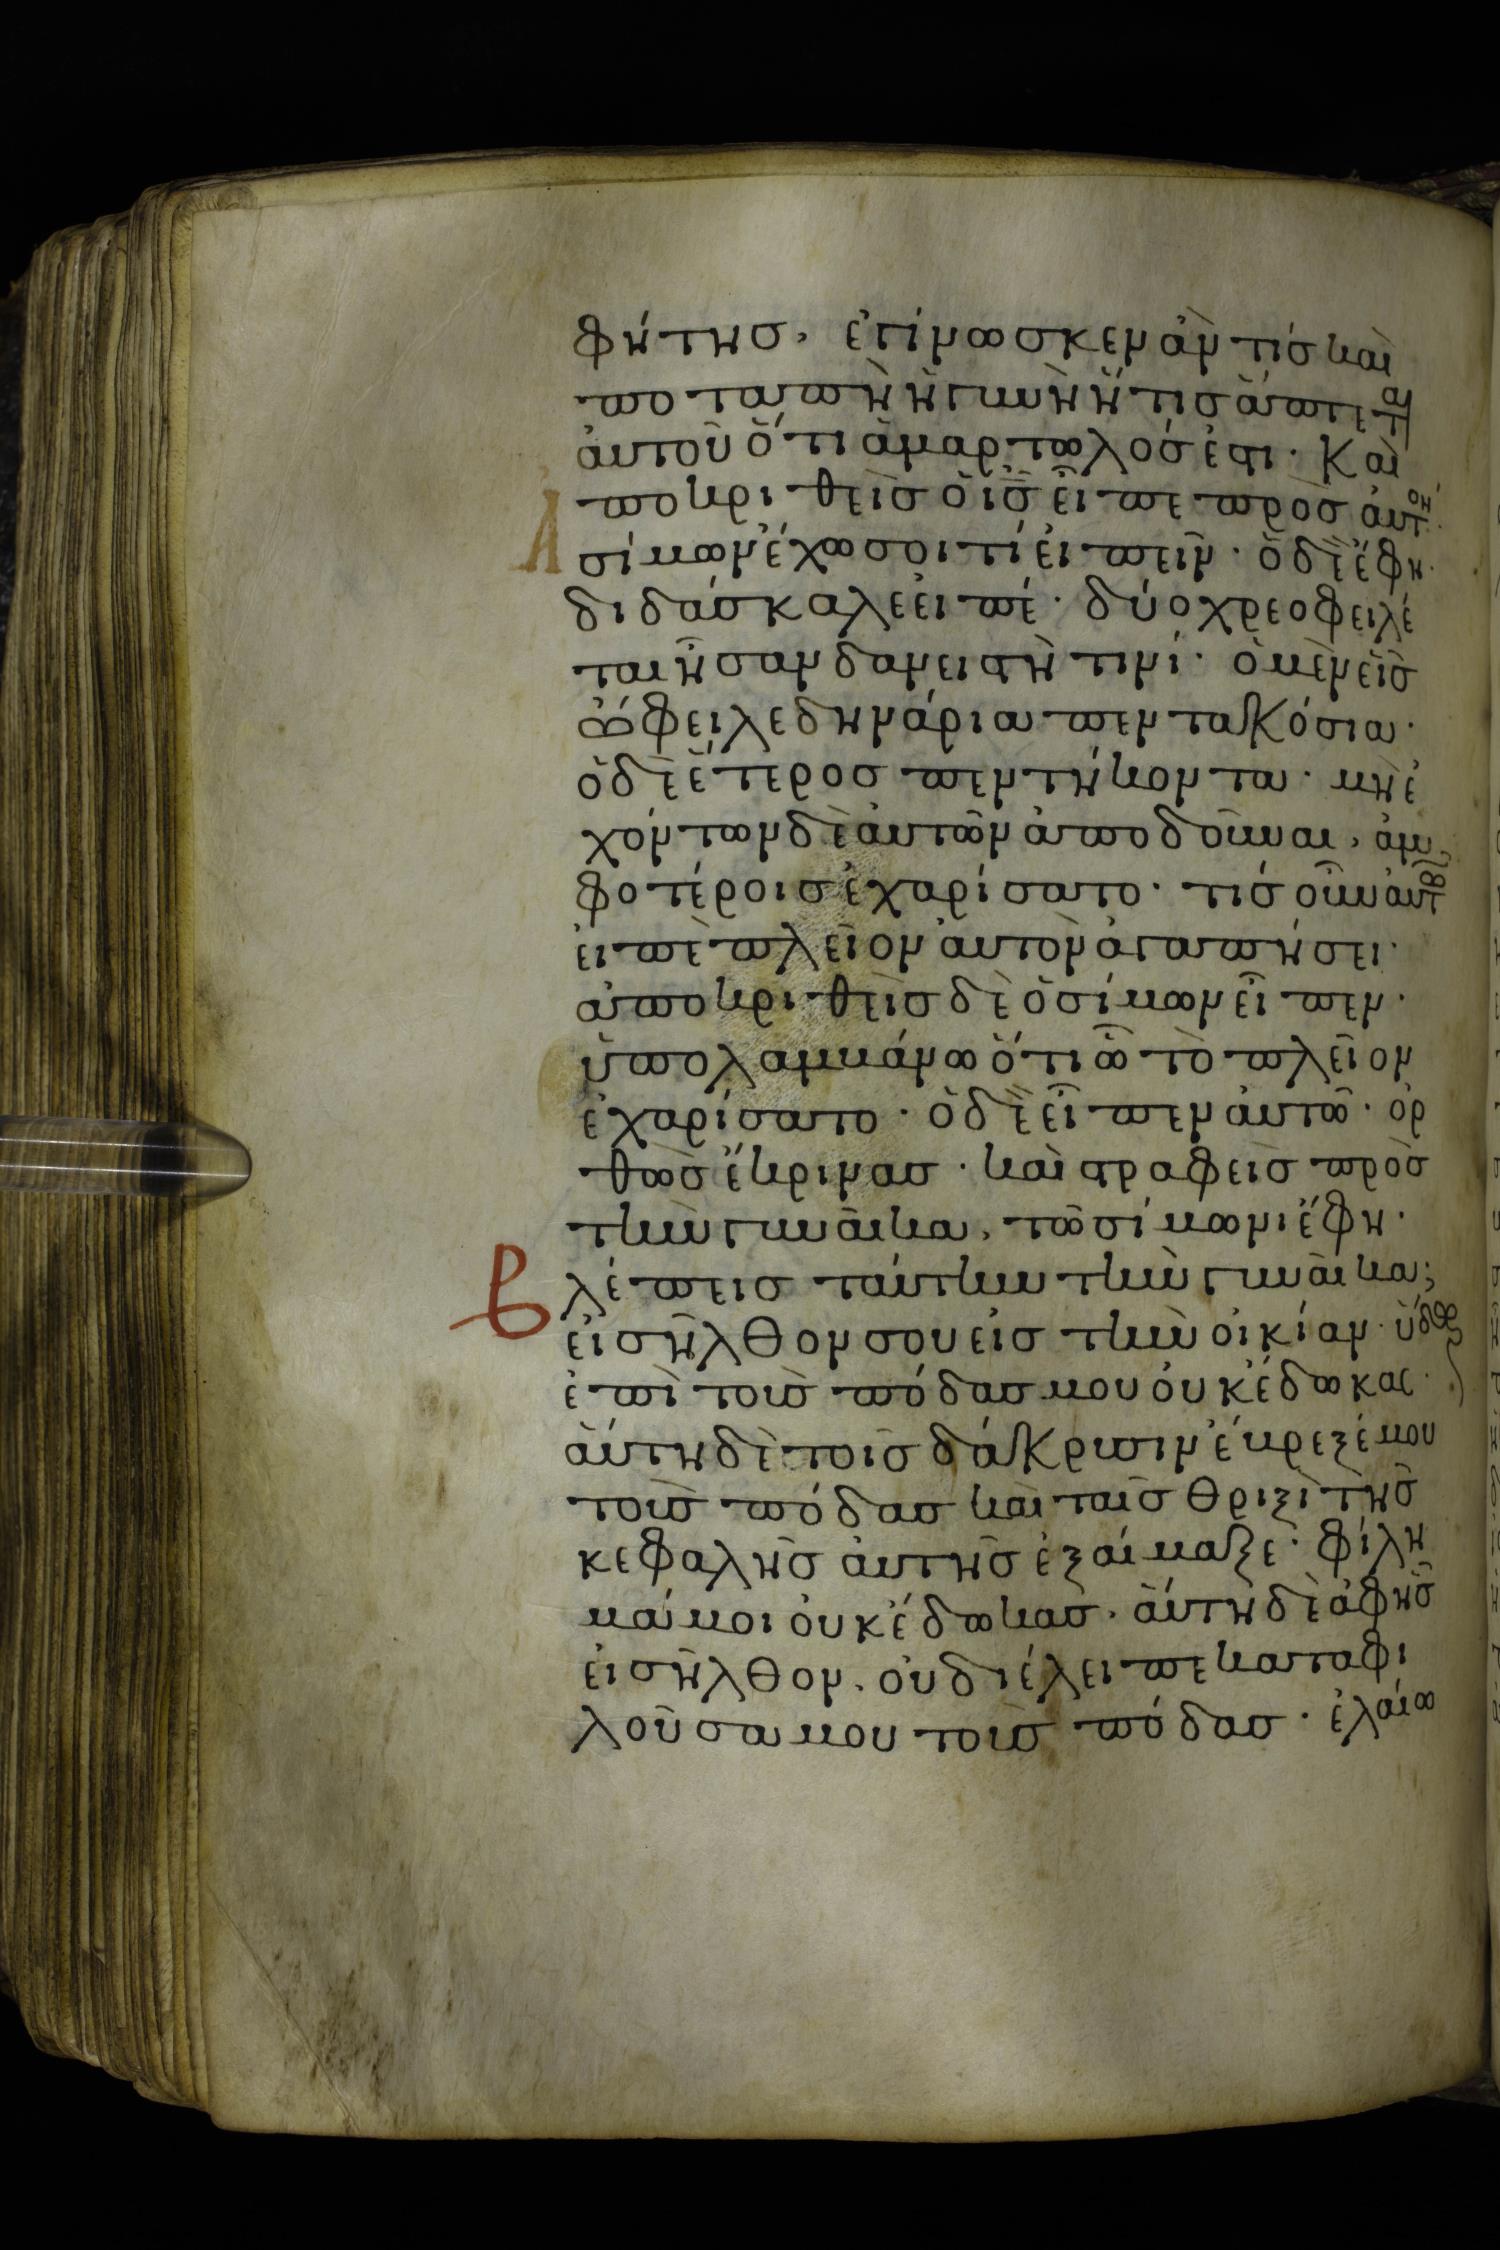 φήτης, ἐγίνωσκεν ἂν τίς καὶ
ποταπὴ ἡ γυνὴ ἥτις ἅπτετ
αὐτοῦ ὅτι ἁμαρτωλός ἐστι· Καὶ
Ἀποκριθεὶς ὁ ις̅ εἶπε πρὸς αὐτόν·
σίμων ἔχω σοι τί εἰπεῖν· ὁ δὲ ἔφη·
διδάσκαλε εἰπέ· δύο χρεοφειλέ
ται ἦσαν δανειστῇ τινί· ὁ μὲν εἷς
ὤφειλε δηνάρια πεντακόσια·
ὁ δὲ ἕτερος πεντήκοντα· μὴ ἐ
χόντων δὲ αὐτῶν ἀποδοῦναι, ἀμ
φοτέροις ἐχαρίσατο· τίς οὖν αὐτῶν
εἰπὲ πλεῖον αὐτὸν ἀγαπήσει·
ἀποκριθεὶς δὲ ὁ σίμων εἶπεν·
ὑπολαμβάνω ὅτι ᾧ τὸ πλεῖον
ἐχαρίσατο· ὁ δὲ εἶπεν αὐτῶ· ὀρ
θῶς ἔκρινας· καὶ στραφεὶς πρὸς
τὴν γυναῖκα, τῶ σίμωνι ἔφη·
Βλέπεις ταύτην τὴν γυναῖκα;
εἰσῆλθον σου εἰς τὴν οἰκίαν· ὕδωρ
ἐπὶ τοὺς πόδας μου οὐκ ἔδωκας·
αὕτη δὲ τοῖς δάκρυσιν ἔβρεξέ μου
τοὺς πόδας καὶ ταῖς θριξὶ τῆς
κεφαλῆς αὐτῆς ἐξαίμαξε· φίλη
μά μοι οὐκ ἔδωκας· αὕτη δὲ ἀφ ἧς
εἰσῆλθον. οὐ διέλειπε καταφι
λοῦσα μου τοὺς πόδας· ἐλαίω